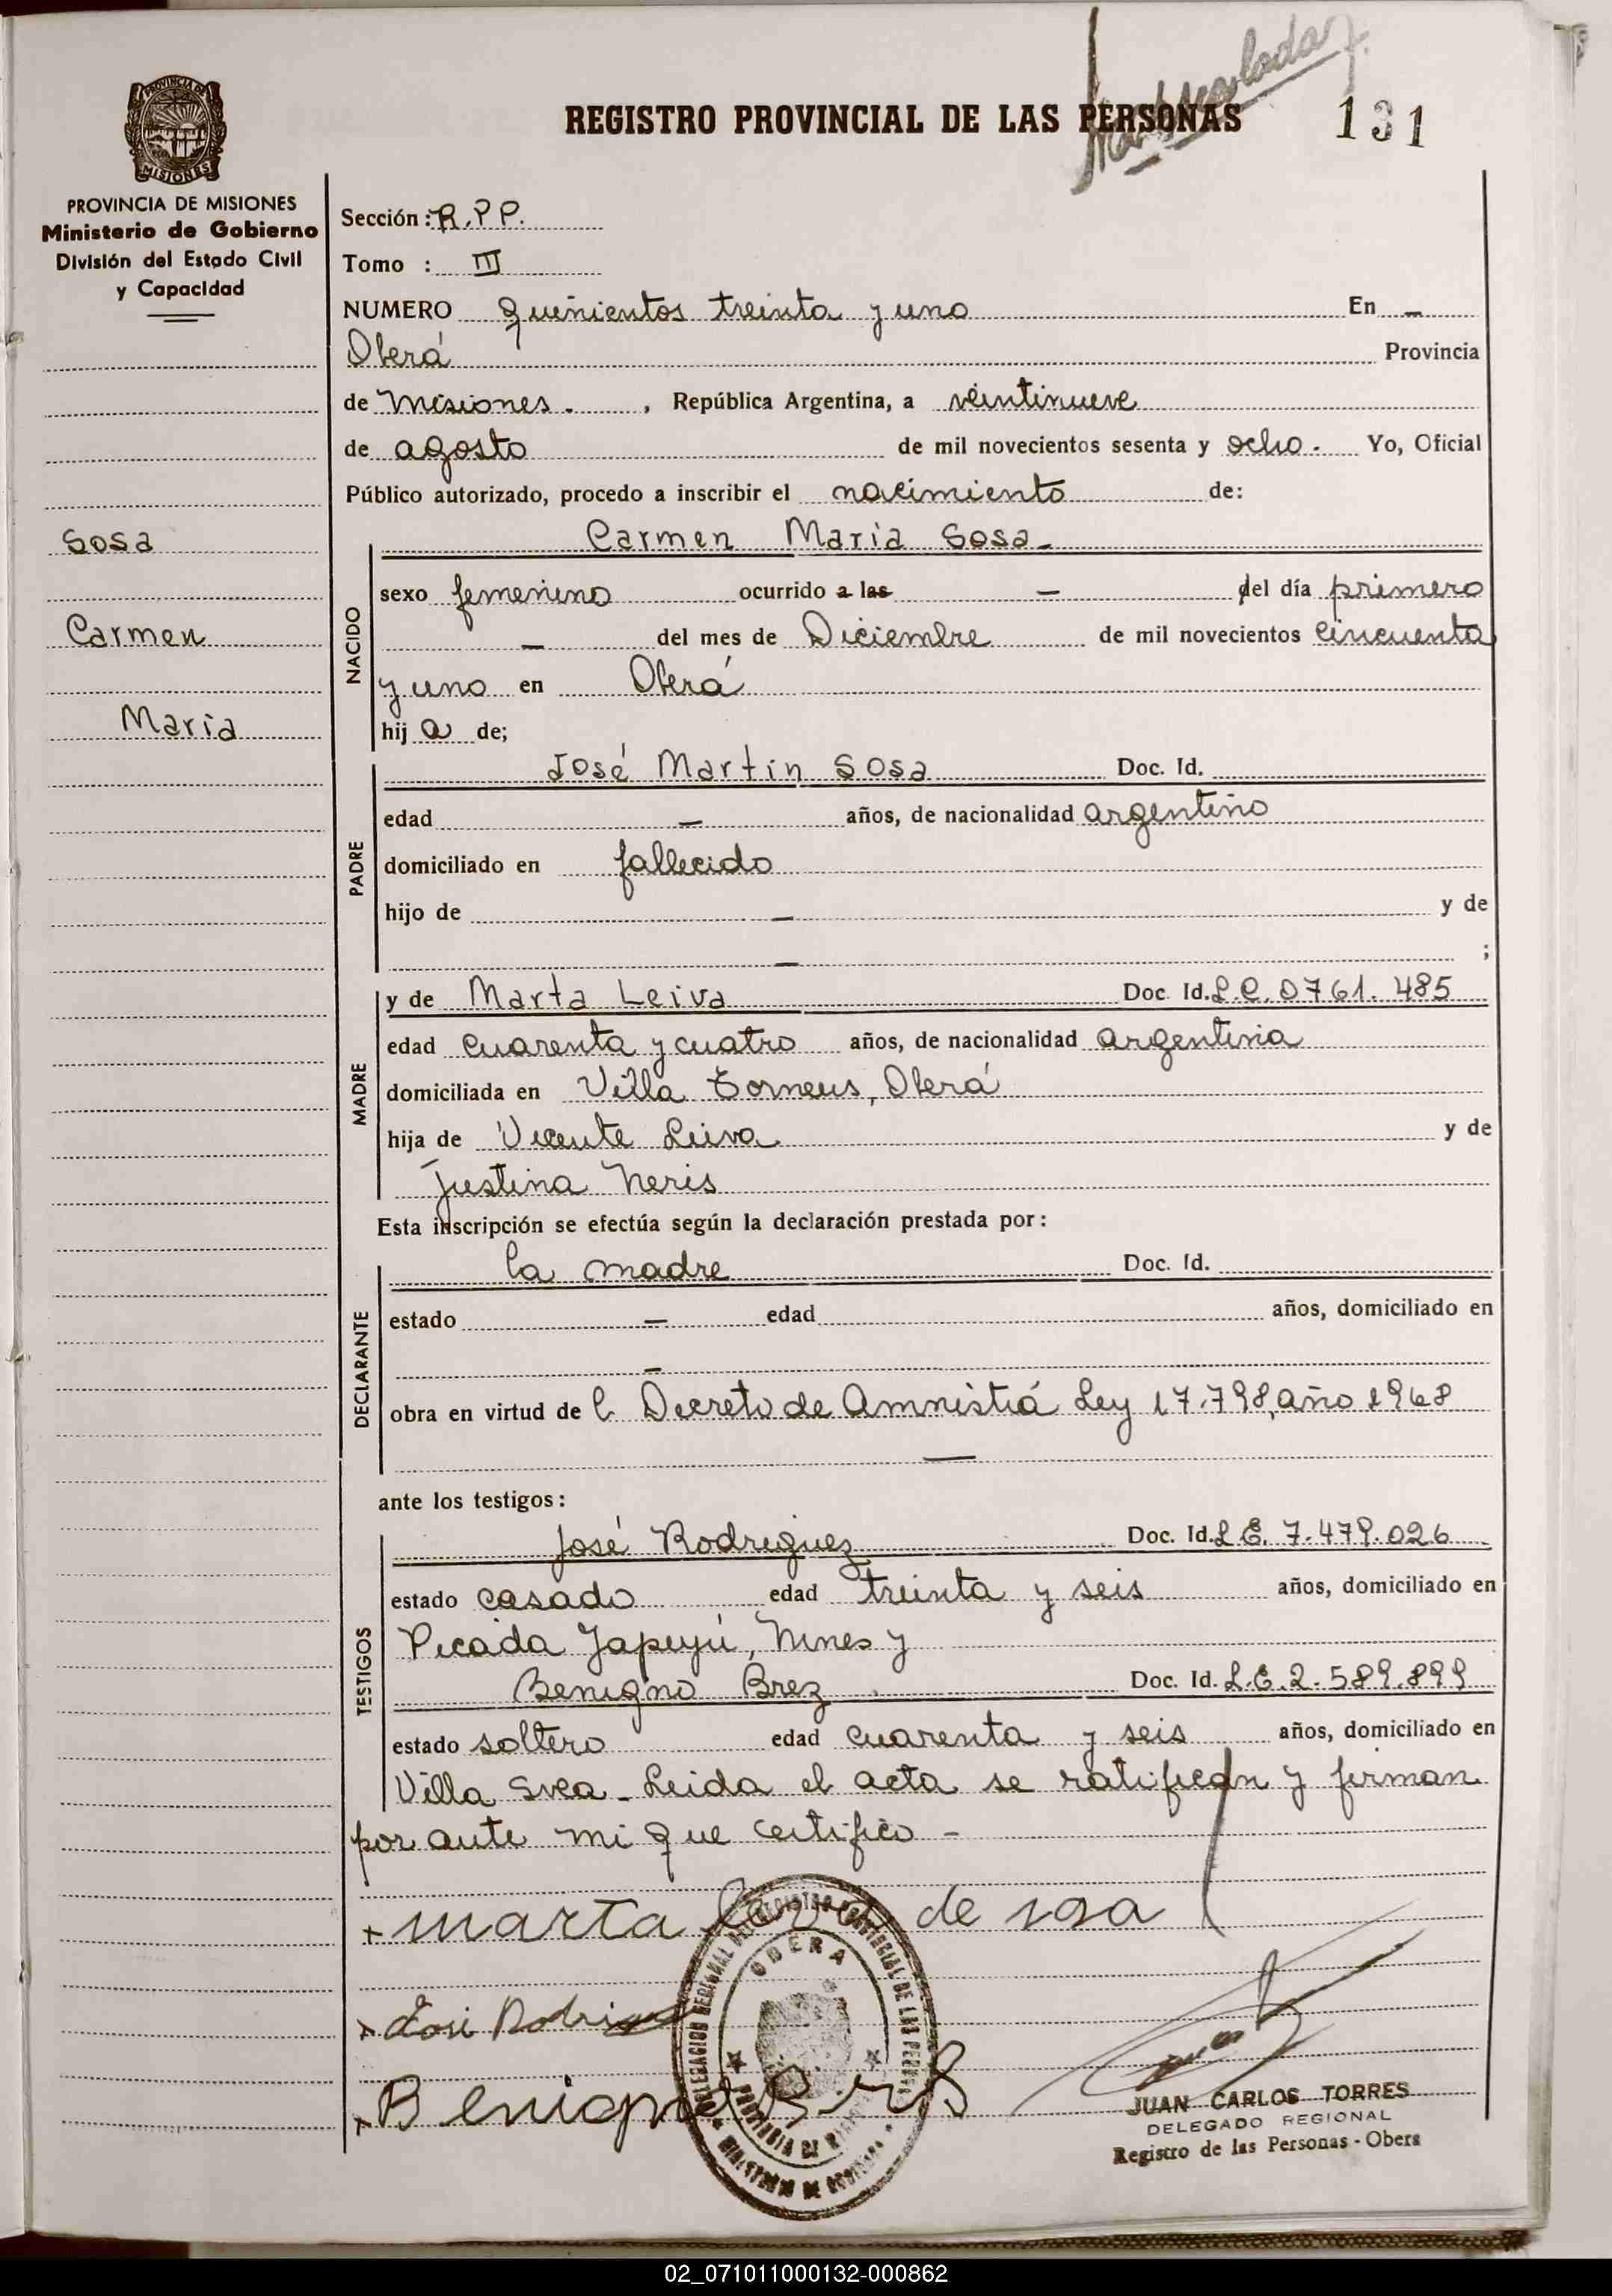 REGISTRO PROVINCIAL DE LAS PERSONAS
131
PROVINCIA DE MISIONES
Ministerio de Gobierno
División del Estado Civil
y Capacidad
Sosa
Carmen
Maria
Sección: R.P.P.
Tomo : III
NUMERO quinientos treinta y uno En —
Oberá Provincia
de Misiones. , República Argentina, a veintinueve
de agosto de mil novecientos sesenta y ocho. Yo, Oficial
Público autorizado, procedo a inscribir el nacimiento de:
NACIDO
Carmen Maria Sosa -
sexo femenino ocurrido a las — del día primero
— del mes de Diciembre de mil novecientos cincuenta
y uno en Oberá
hij a de;
PADRE
José Martin Sosa Doc. Id.
edad — años, de nacionalidad argentino
domiciliado en fallecido
hijo de — y de
— ;
MADRE
y de Marta Leiva Doc. Id. L.C. 0761.485
edad cuarenta y cuatro años, de nacionalidad argentina
domiciliada en Villa Torneus, Oberá
hija de Vicente Leiva y de
Justina Neris
Esta inscripción se efectúa según la declaración prestada por:
DECLARANTE
la madre Doc. Id.
estado — edad años, domiciliado en
—
obra en virtud de l Decreto de Amnistiá Ley 17.798, año 1968
—
ante los testigos:
TESTIGOS
José Rodriguez Doc. Id. L.E. 7.479.026
estado casado edad treinta y seis años, domiciliado en
Picada Yapeyú, y
Benigno Brez Doc. Id. L.E. 2.589.899
estado soltero edad cuarenta y seis años, domiciliado en
Villa Svea - Leida el acta se ratifican y firman
por ante mi que certifico -
+ marta de sosa
+ José
+ Benigno
OBERA
JUAN CARLOS TORRES
DELEGADO REGIONAL
Registro de las Personas - Obera
02_071011000132-000862